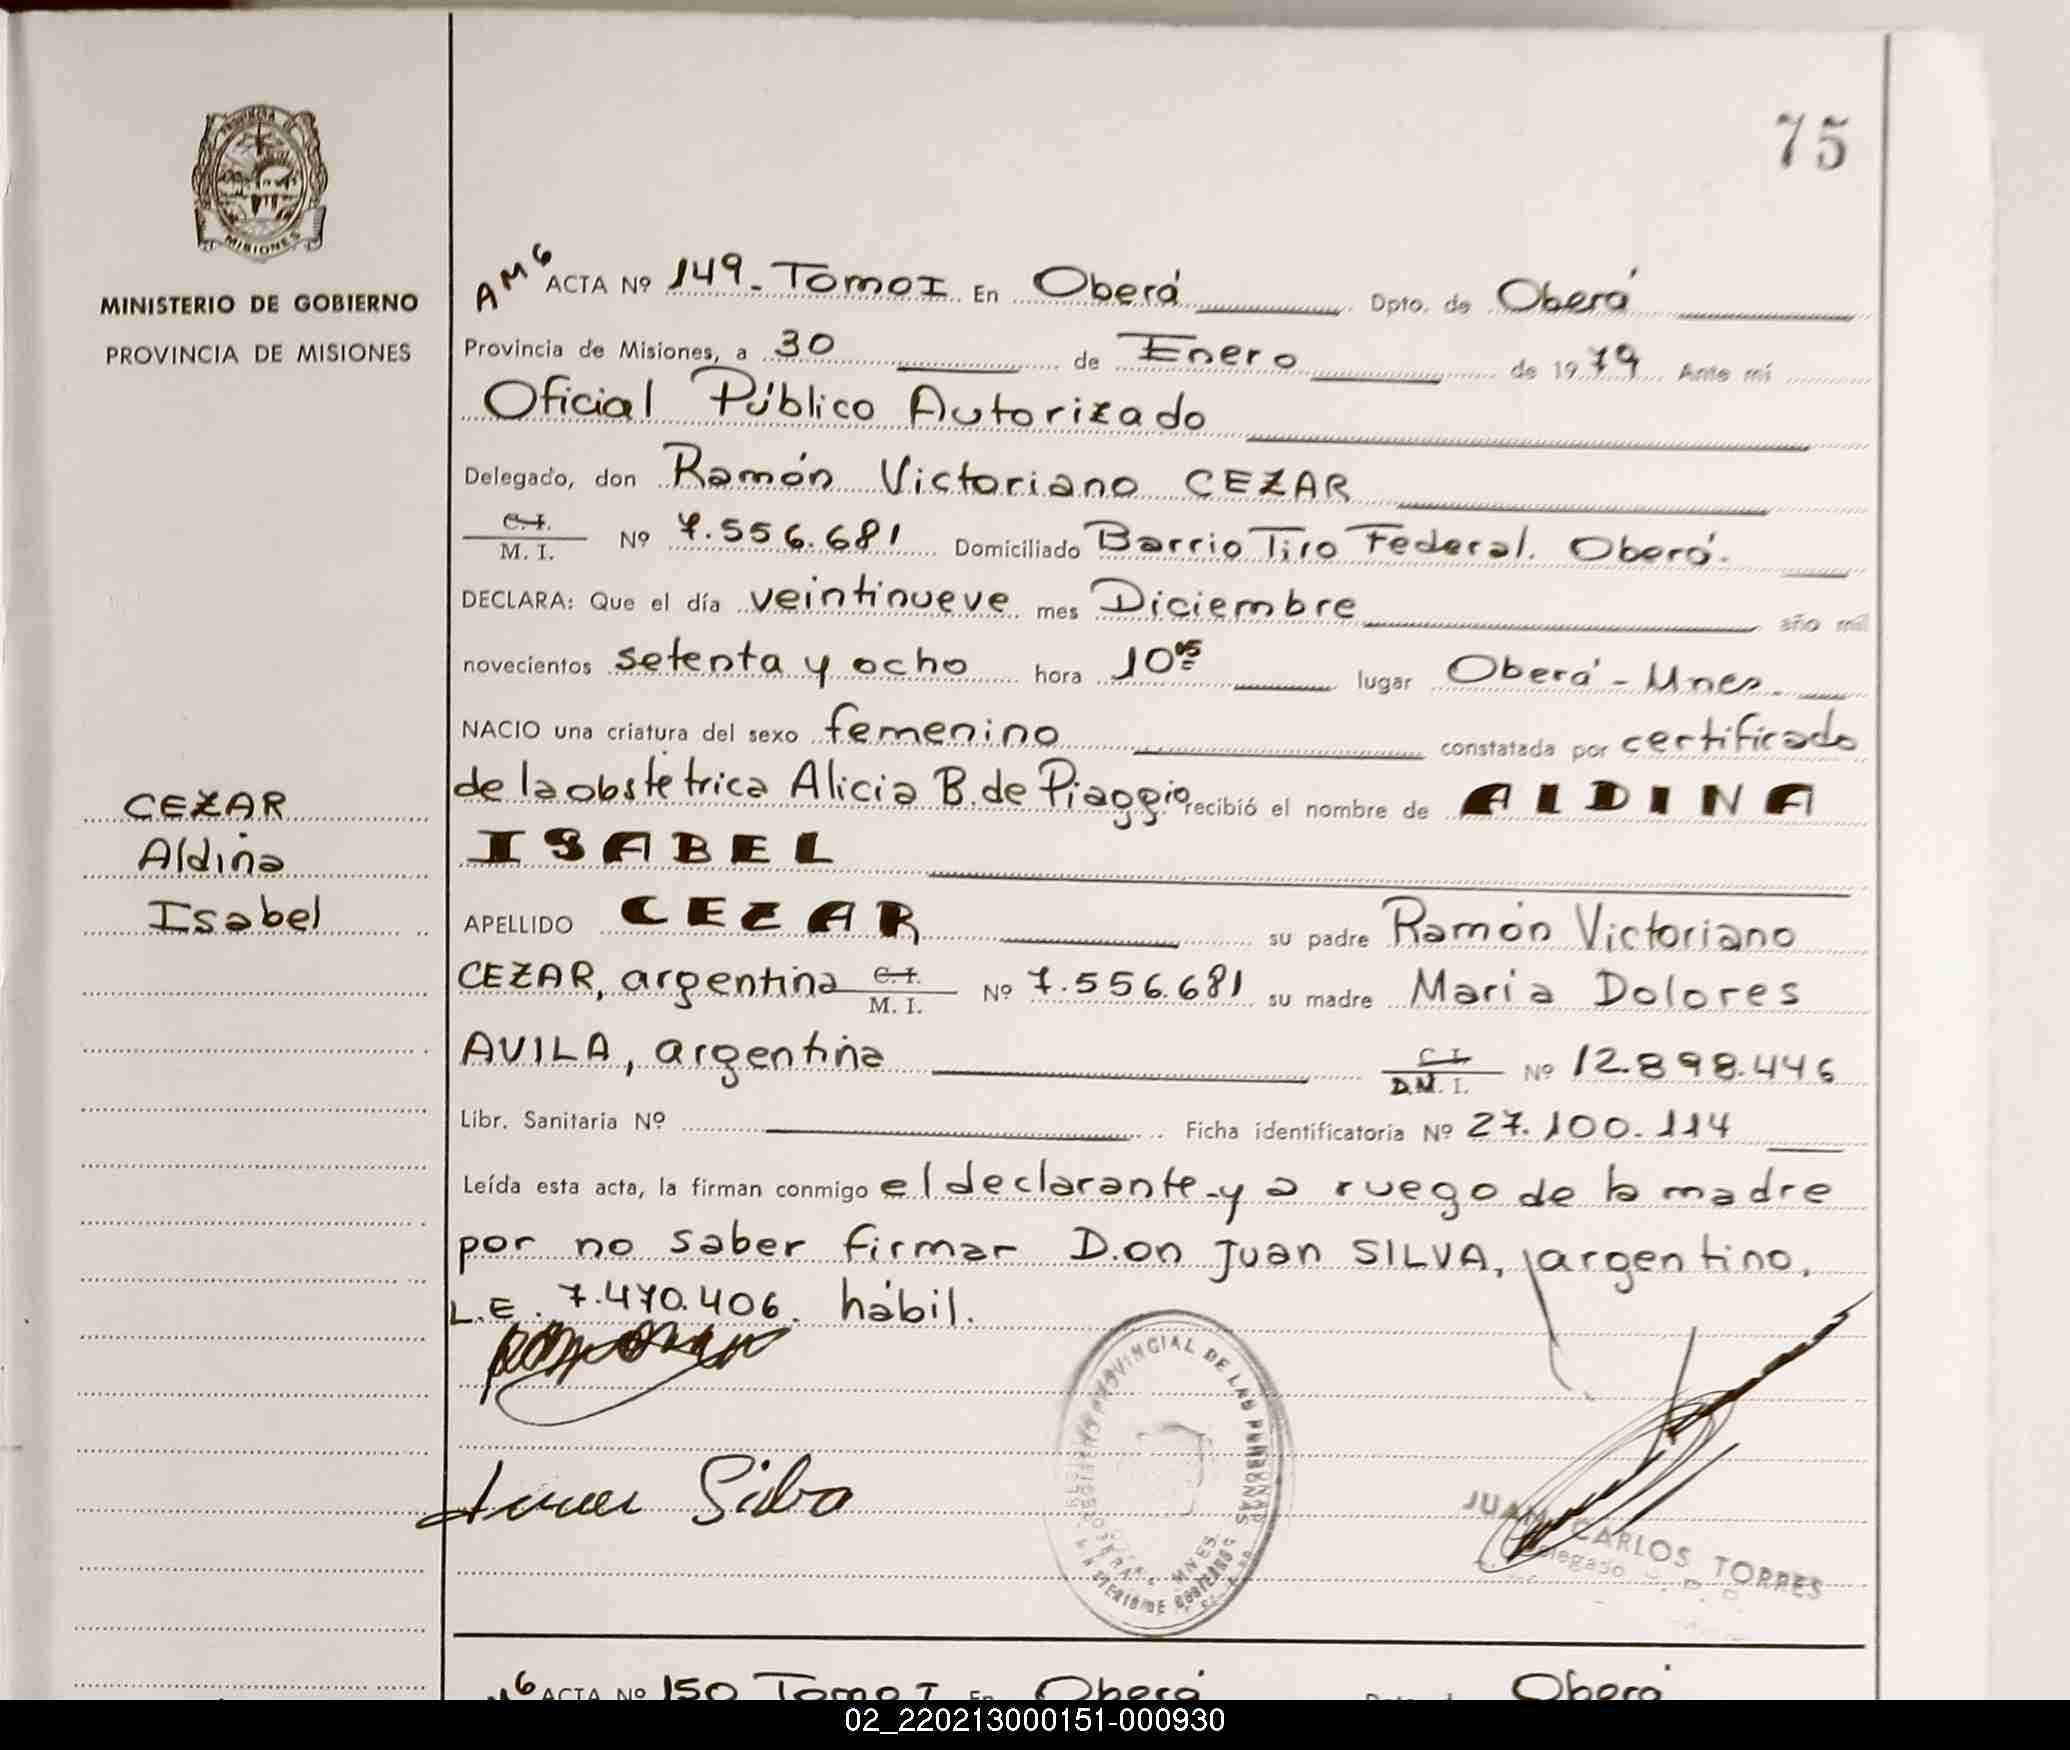 75
PROVINCIA DE
MISIONES
MINISTERIO DE GOBIERNO
PROVINCIA DE MISIONES
AM6 ACTA Nº 149 - Tomo I En Oberá Dpto. de Oberá
Provincia de Misiones, a 30 de Enero de 1979 Ante mí
Oficial Público Autorizado
Delegado, don Ramón Victoriano CEZAR
C.I.
M. I. Nº 7.556.681 Domiciliado Barrio Tiro Federal. Oberá.
DECLARA: Que el día veintinueve mes Diciembre año mil
novecientos setenta y ocho hora 10 05 lugar Oberá - Mnes.
NACIO una criatura del sexo femenino constatada por certificado
de la obstetrica Alicia B. de Piaggio recibió el nombre de ALDINA
ISABEL
CEZAR
Aldina
Isabel
APELLIDO CEZAR su padre Ramón Victoriano
CEZAR, argentina C.I. M. I. Nº 7.556.681 su madre Maria Dolores
AVILA, argentina C.I. D.N. I. Nº 12.898.446
Libr. Sanitaria Nº Ficha identificatoria Nº 27.100.114
Leída esta acta, la firman conmigo el declarante - y a ruego de la madre
por no saber firmar D.on Juan SILVA, argentino,
L.E. 7.470.406. hábil.
Juan Silva
PROVINCIAL DE LAS PERSONAS
OBERA MNES.
MINISTERIO DE GOBIERNO
JUAN CARLOS TORRES
Delegado
ACTA Nº 150 Tomo I En Oberá Oberá
02_220213000151-000930